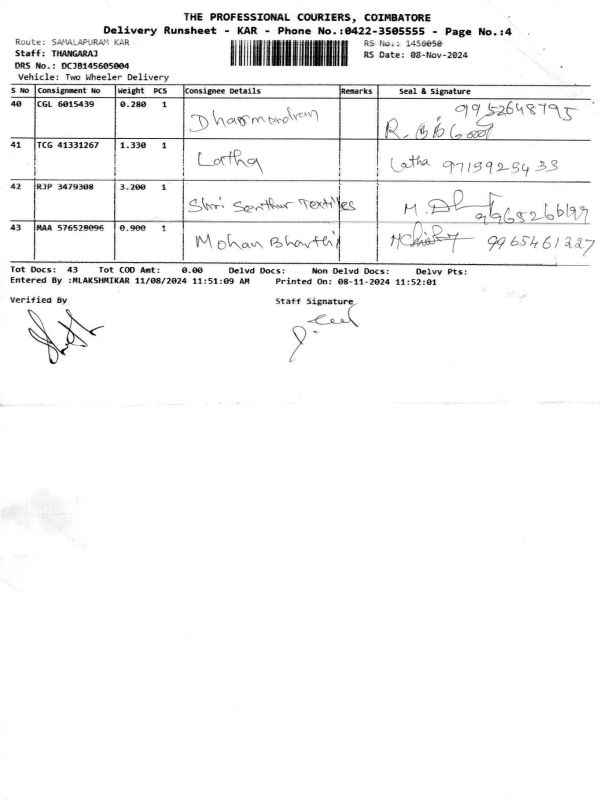 THE PROFESSIONAL COURIERS, COIMBATORE
Delivery Runsheet - KAR - Phone No.:0422-3505555 - Page No.:4
Route: SAMALAPURAM KAR
RS No.: 1456050
Staff: THANGARAJ
RS Date: 08-Nov-2024
DRS No.: DCJB145605004
Vehicle: Two Wheeler Delivery
S No Consignment No Weight PCS Consignee Details Remarks Seal & Signature
40 CGL 6015439 0.280 1 9952648795
R.
41 TCG 41331267 1.330 1 Latha Latha 9715925433
42 RJP 3479308 3.200 1 Shri Senthur Textiles M.
43 MAA 576528096 0.900 1 Mohan Bharthi 9965461227
Tot Docs: 43 Tot COD Amt: 0.00 Delvd Docs: Non Delvd Docs: Delvy Pts:
Entered By :MLAKSHMIKAR 11/08/2024 11:51:09 AM Printed On: 08-11-2024 11:52:01
Verified By Staff Signature